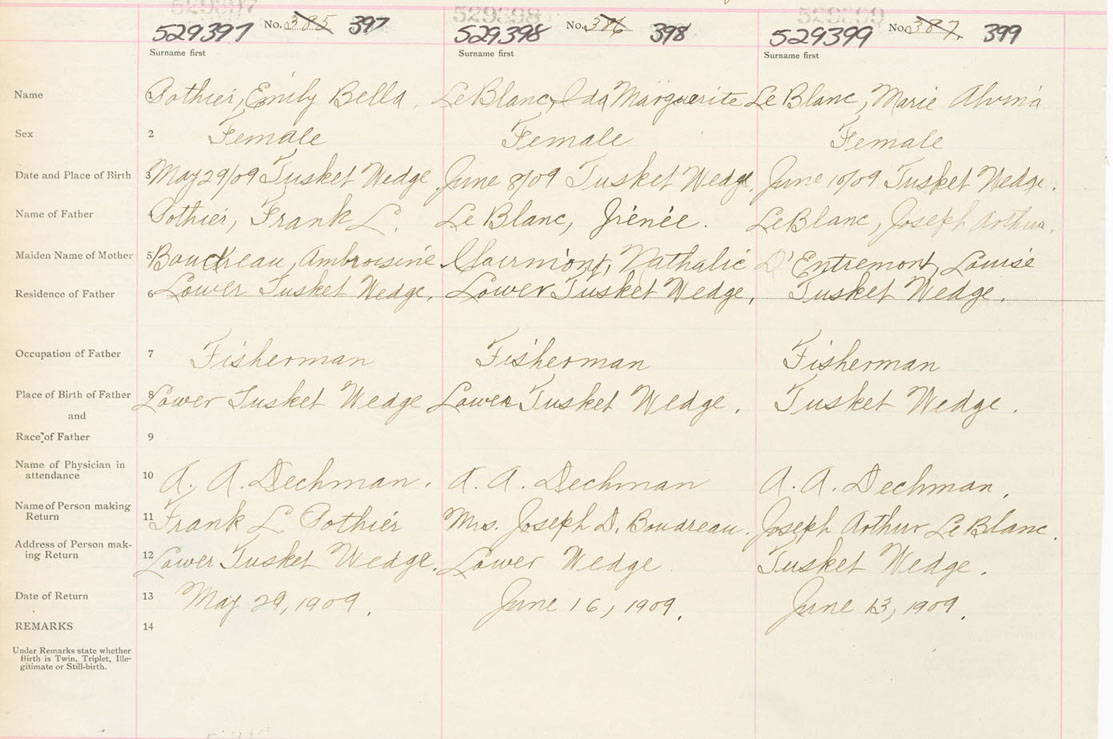 529397 529398 529399
529397 No. 385 397 529398 No. 386 398 529399 No. 387 399
Surname first Surname first Surname first
Name 1 Pothier, Emily Bella. LeBlanc, Ida Marguerite LeBlanc, Marie Alvina
Sex 2 Female Female Female
Date and Place of Birth 3 May 29/09 Tusket Wedge June 8/09 Tusket Wedge, June 10/09 Tusket Wedge.
Name of Father 4 Pothier, Frank L. Le Blanc, Irénée. LeBlanc, Joseph Arthur.
Maiden Name of Mother 5 Boudreau, Ambroisine Clairmont, Nathalie D'Entremont, Louise
Residence of Father 6 Lower Tusket Wedge, Lower Tusket Wedge, Tusket Wedge.
Occupation of Father 7 Fisherman Fisherman Fisherman
Place of Birth of Father 8 Lower Tusket Wedge Lower Tusket Wedge. Tusket Wedge.
and
Race of Father 9
Name of Physician in
attendance 10 A. A. Dechman. A. A. Dechman A. A. Dechman.
Name of Person making
Return 11 Frank L. Pothier Mrs. Joseph D. Boudreau. Joseph Arthur LeBlanc.
Address of Person mak-
ing Return 12 Lower Tusket Wedge. Lower Wedge Tusket Wedge.
Date of Return 13 May 29, 1909. June 16, 1909. June 13, 1909.
REMARKS 14
Under Remarks state whether
Birth is Twin, Triplet, Ille-
gitimate or Still-birth.